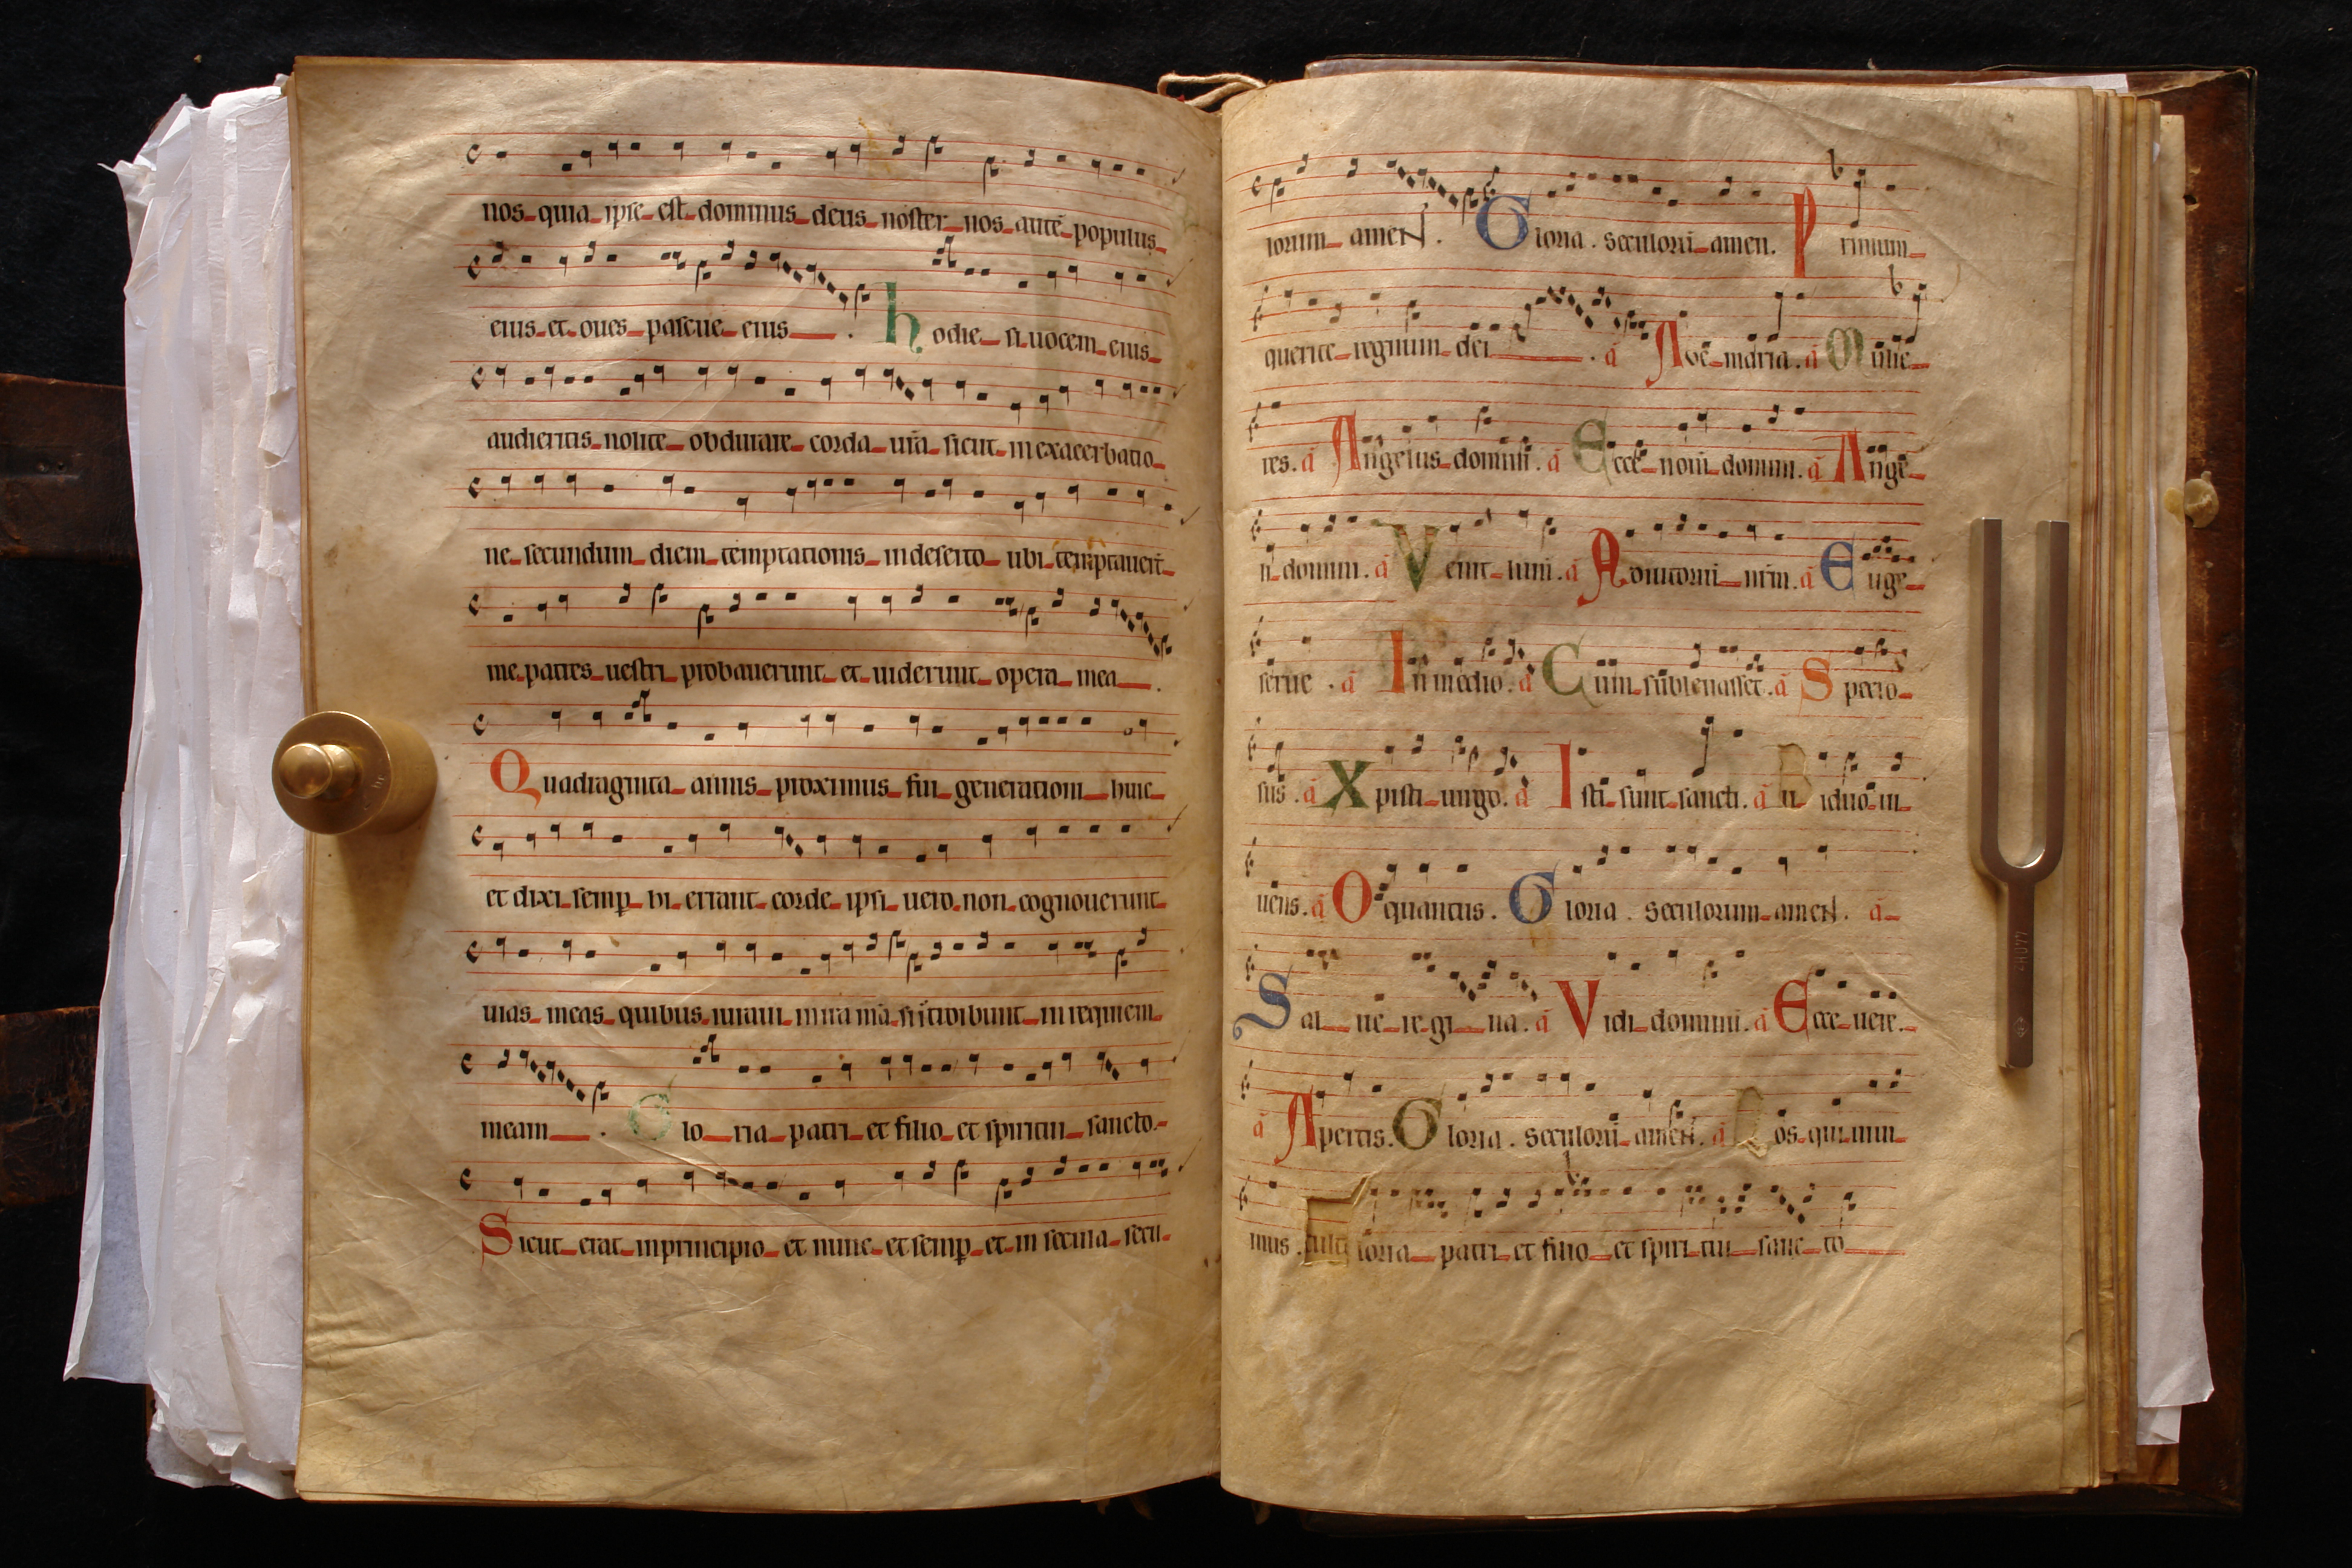 nos quia ipse est dominus deus noster nos autē populus
eius et oues pascue eius . hodie si uocem eius
audieritis nolite obdurare corda urā sicut in exacerbatio
ne secundum diem temptationis in deserto ubi temptauerūt
me patres uestri probauerunt et uiderunt opera mea .
Quadraginta annis proximus fui generationi huic
et dixi semp hi errant corde ipsi uero non cognouerunt
uias meas quibus iuraui in ira mā si introibunt in requiem
meam . Gloria patri et filio et spiritui sancto
Sicut erat in principio et nunc et semp et in secula secu
lorum amen . Gloria . seculorū amen . Primum
querite regnum dei . ā Aue maria . ā Mulie
res . ā Angelus domini . ā Ecce nomen domini . ā Ange
li domini . ā Veniet ā Adiutoriū nrm . ā Euge
serue . ā In medio . ā Cum subleuasset . ā Specio
sus . ā Xpisti uirgo . ā Isti sunt sancti . ā Biduo ui
uens . ā O quantus . Gloria . seculorum amen . ā
Salue regina . ā Vidi dominū . ā Ecce uere
ā Apertis . Gloria . seculorū amen . ā Nos qui uiui
mus . Gloria patri et filio et spiritui sancto